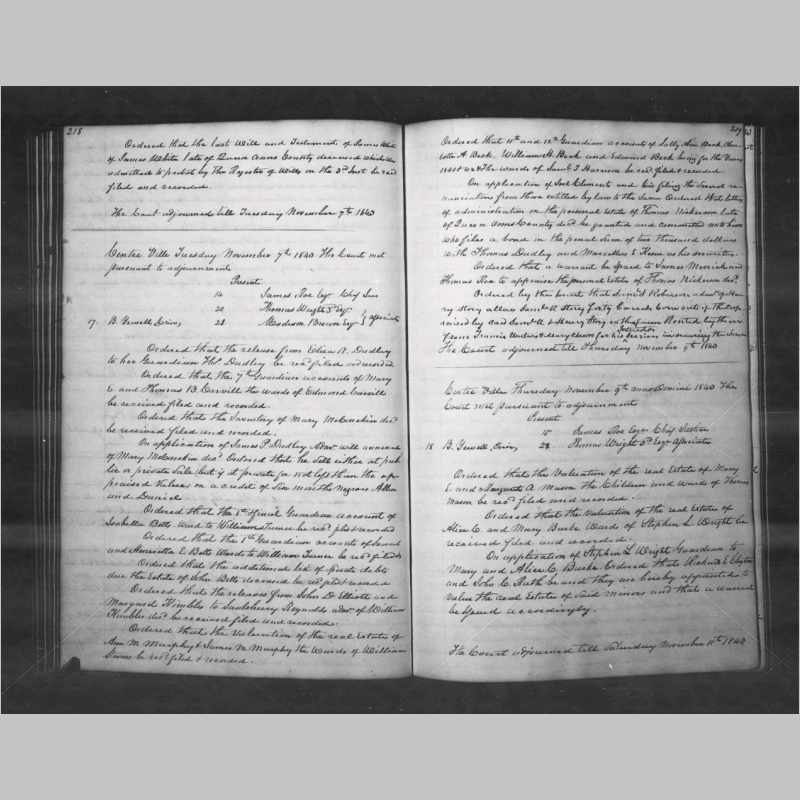 218
Ordered that the last Will and Testament of James White
of James White late of Queen Anns County deceased which was
admitted to probate by the Register of Wills on the 3d Inst be recd
filed and recorded.
The Court adjourned till Tuesday November 7th 1843
Centre Ville Tuesday November 7th 1843 The Court met
pursuant to adjournment
Present
James Roe Esqr Chief Jus
20 Thomas Wright 3d Esqr
17. B. Gewell, Crier, 28 Madison Brown Esqr } Associates
Ordered that the release from Eliza A. Dudley
to her Guardian Thos Dudley be recd filed & recorded
Ordered that the 7th Guardian accounts of Mary
E and Thomas B. Carvill the wards of Edmund Carvill
be received filed and recorded.
Ordered that the Inventory of Mary McConikin decd
be received filed and recorded.
On application of James P. Dudley Admr will annexed
of Mary McConikin decd Ordered that he sell either at pub
lic or private sale but if at private for not less than the ap
praised Value, on a credit of Six mos the Negroes Allen
and Daniel
Ordered that the 1st & final Guardian account of
Isabella Betts ward to William Turner be recd filed & recorded
Ordered that the 1st Guardian accounts of
and Henrietta E. Betts Wards to William Turner be recd filed &
Ordered that the additional list of Sperate debts
due the Estate of John Betts deceased be recd filed & recorded
Ordered that the releases from John D. Elliott and
Margaret Kimbles to Saulsbury Reynolds admr of William
Kimbles decd be received filed and recorded.
Ordered that the Valuation of the real Estates of
Ann M. Murphey & James M Murphy the Wards of William
be recd filed & recorded.
219
Ordered that 11th and 12th Guardian accounts of Sally Ann Beck Char
lotte A Beck William H. Beck and Edward Beck being for the Years
1841 & 42 The wards of Saml T Harrison be recd filed & recorded
On application of Joel Clements and his filing the Several re
nunciations from those entitled by law to the Same Ordered that letters
of administration on the personal estate of Thomas Nickerson late
of Queen Anns County decd be granted and committed unto him
who files a bond in the penal Sum of two thousand dollars
with Thomas Dudley and Marcellus Keene as his sureties.
Ordered that a warrant be issued to James Merrick and
Thomas Roe to appraise the personal estate of Thomas Nickerson decd.
Ordered by the Court that Lemuel Roberson admr of Hen
ry Story allow Saml W Story Forty
raised by said Saml W & Henry Story on the farm Rented by them
from Francis
The Court adjourned till Thursday November 9th 1843
Centre Ville Thursday November 9th anno Domini 1843 The
Court met pursuant to adjournment
Present
James Roe Esqr Chief Justice
18 B. Gewell, Crier, 28 Thomas Wright 3d Esqr Associate
Ordered that the Valuation of the real Estate of Mary
E. and Margaretta A. Mason the Children and wards of Thomas
Mason be recd filed and recorded.
Ordered that the valuation of the real Estates of
Alice C. and Mary Burke Wards of Stephen L. Wright be
received filed and recorded.
On application of Stephen L Wright Guardian to
Mary and Alice C. Burke Ordered that Richard E Clayton
and John C. Ruth be and they are hereby appointed to
value the real Estates of Said minors and that a warrant
be issued accordingly.
The Court adjourned till Saturday November 11th 1843